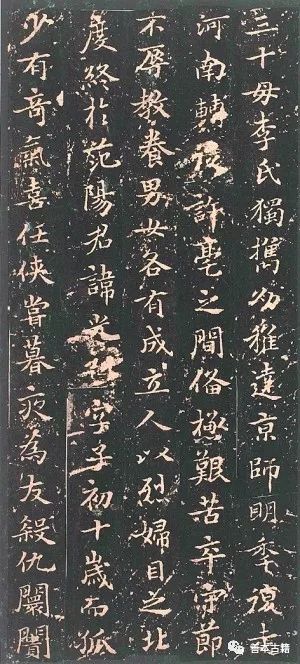 三十毋李氏獨攜幼稚達京師明季復走
河南轉徙許亳之間俻極艱苦卒守節
不辱教養男女各有成立人以烈婦目之北
度終於范陽君諱光 字子初十歲而孤
少有奇氣喜任俠嘗暮夜為友殺仇闤闠
善本古籍